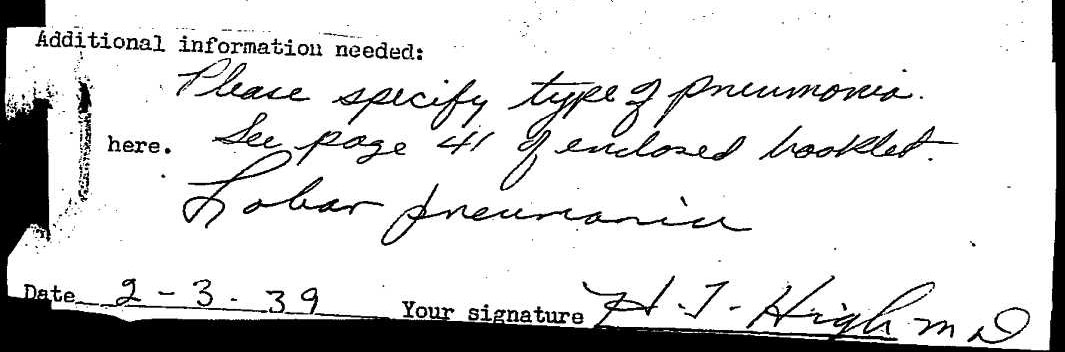 Additional information needed:
Please specify type of pneumonia.
here. See page 41 of enclosed booklet.
Lobar pneumonia
Date 2-3-39 Your signature H-T-High M D